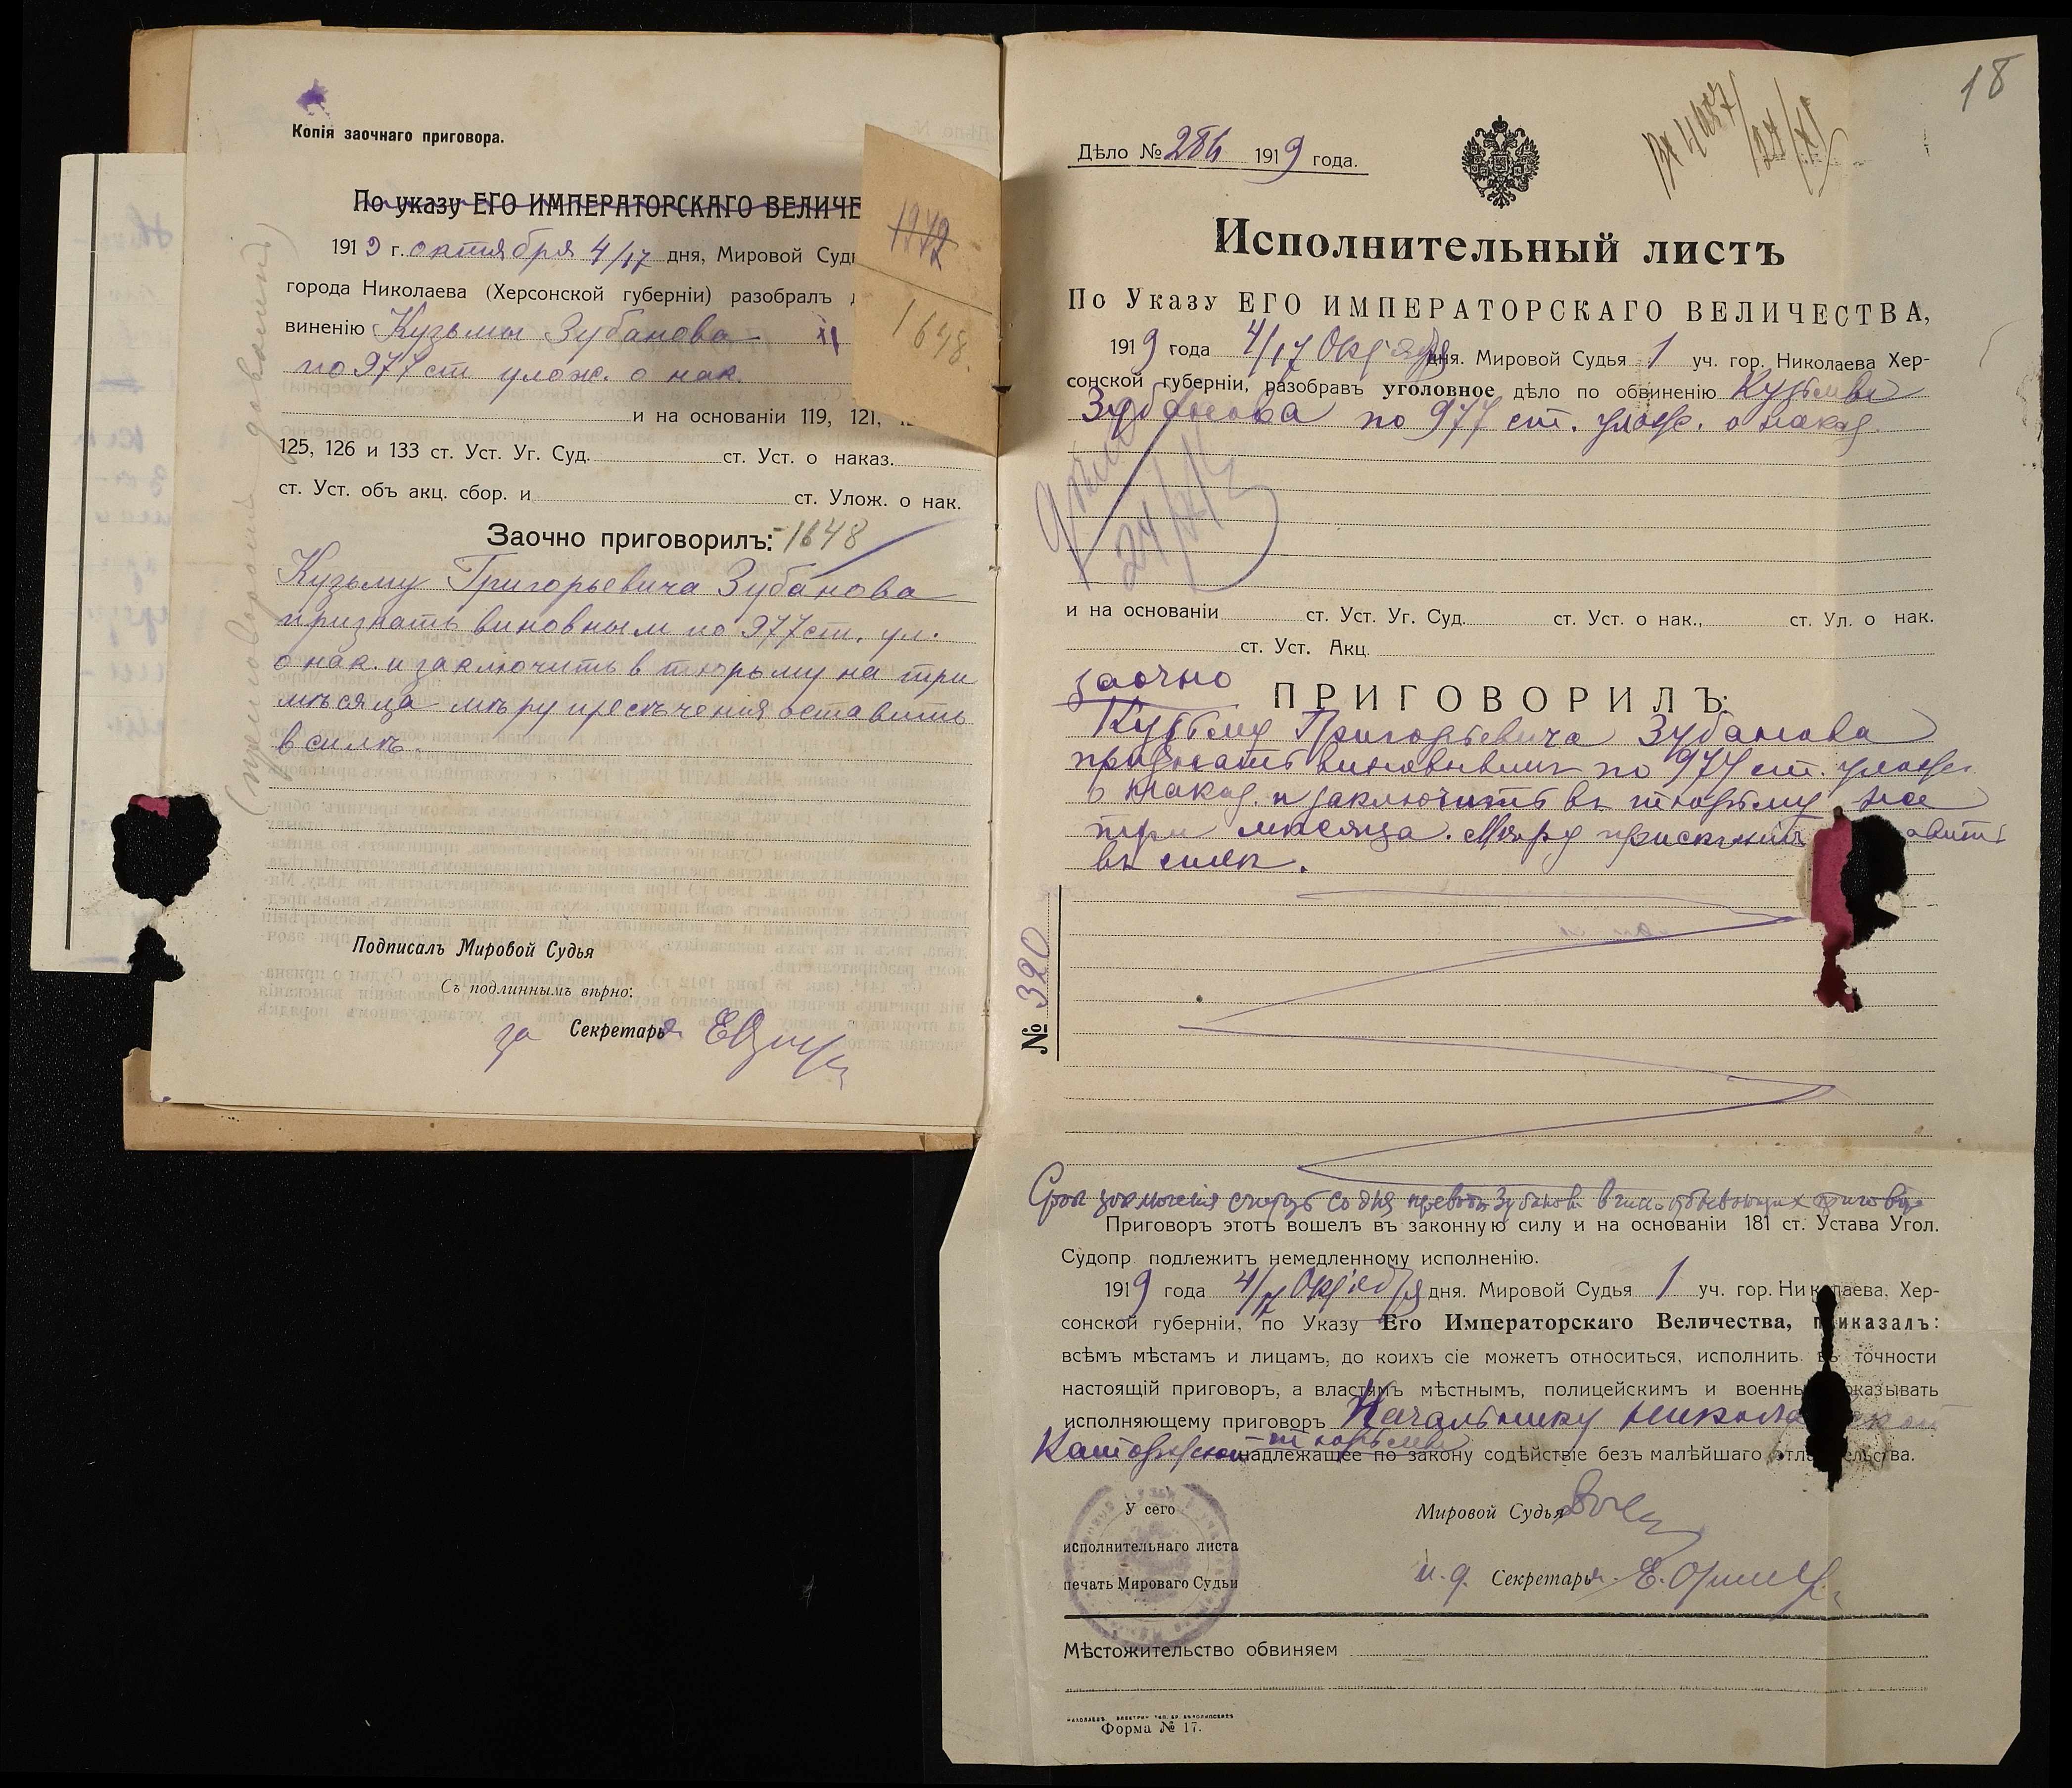 Копія заочнаго приговора.
По указу ЕГО ИМПЕРАТОРСКАГО ВЕЛИЧЕ
1919 г. октября 4/17 дня, Мировой Судь
города Николаева (Херсонской губерніи) разобралъ
виненію Кузьмы Зубанова
по 977 ст улож. о нак.
и на основаніи 119, 121,
125, 126 и 133 ст. Уст. Уг. Суд. ст. Уст. о наказ.
ст. Уст. объ акц. сбор. и ст. Улож. о нак.
Заочно приговорилъ: 1648
Кузьму Григорьевича Зубанова
признать виновным по 977 ст. ул.
о нак. и заключить в тюрьму на три
мѣсяца мѣру пресѣченія оставить
в силѣ.
Подписалъ Мировой Судья
Съ подлиннымъ вѣрно:
за Секретаря
1648.
18
Дѣло № 286 1919 года.
Исполнительный листъ
По Указу ЕГО ИМПЕРАТОРСКАГО ВЕЛИЧЕСТВА,
1919 года 4/17 Октября дня. Мировой Судья 1 уч. гор. Николаева Хер-
сонской губерніи, разобравъ уголовное дѣло по обвиненію Кузьмы
Зубанова по 977 ст. улож. о наказ.
и на основаніи ст. Уст. Уг. Суд. ст. Уст. о нак., ст. Ул. о нак.
ст. Уст. Акц.
заочно ПРИГОВОРИЛЪ:
Кузьму Григорьевича Зубанова
признать виновнымъ по 977 ст. улож.
о наказ. и заключить въ тюрьму на
три мѣсяца. Мѣру пресѣченія
въ силѣ.
№ 320
Срок заключенія считать со дня Зубанова
Приговоръ этотъ вошелъ въ законную силу и на основаніи 181 ст. Устава Угол.
Судопр. подлежитъ немедленному исполненію.
1919 года 4/17 Октября дня. Мировой Судья 1 уч. гор. Николаева, Хер-
сонской губерніи, по Указу Его Императорскаго Величества, приказалъ:
всѣмъ мѣстамъ и лицамъ, до коихъ сіе можетъ относиться, исполнить въ точности
настоящій приговоръ, а властямъ мѣстнымъ, полицейскимъ и военны оказывать
исполняющему приговоръ Начальнику Никола
Каторжной тюрьмы надлежащее по закону содѣйствіе безъ малѣйшаго отла ельства.
У сего
исполнительнаго листа
печать Мироваго Судьи
Мировой Судья
и. д. Секретаря
Мѣстожительство обвиняем
Форма № 17.